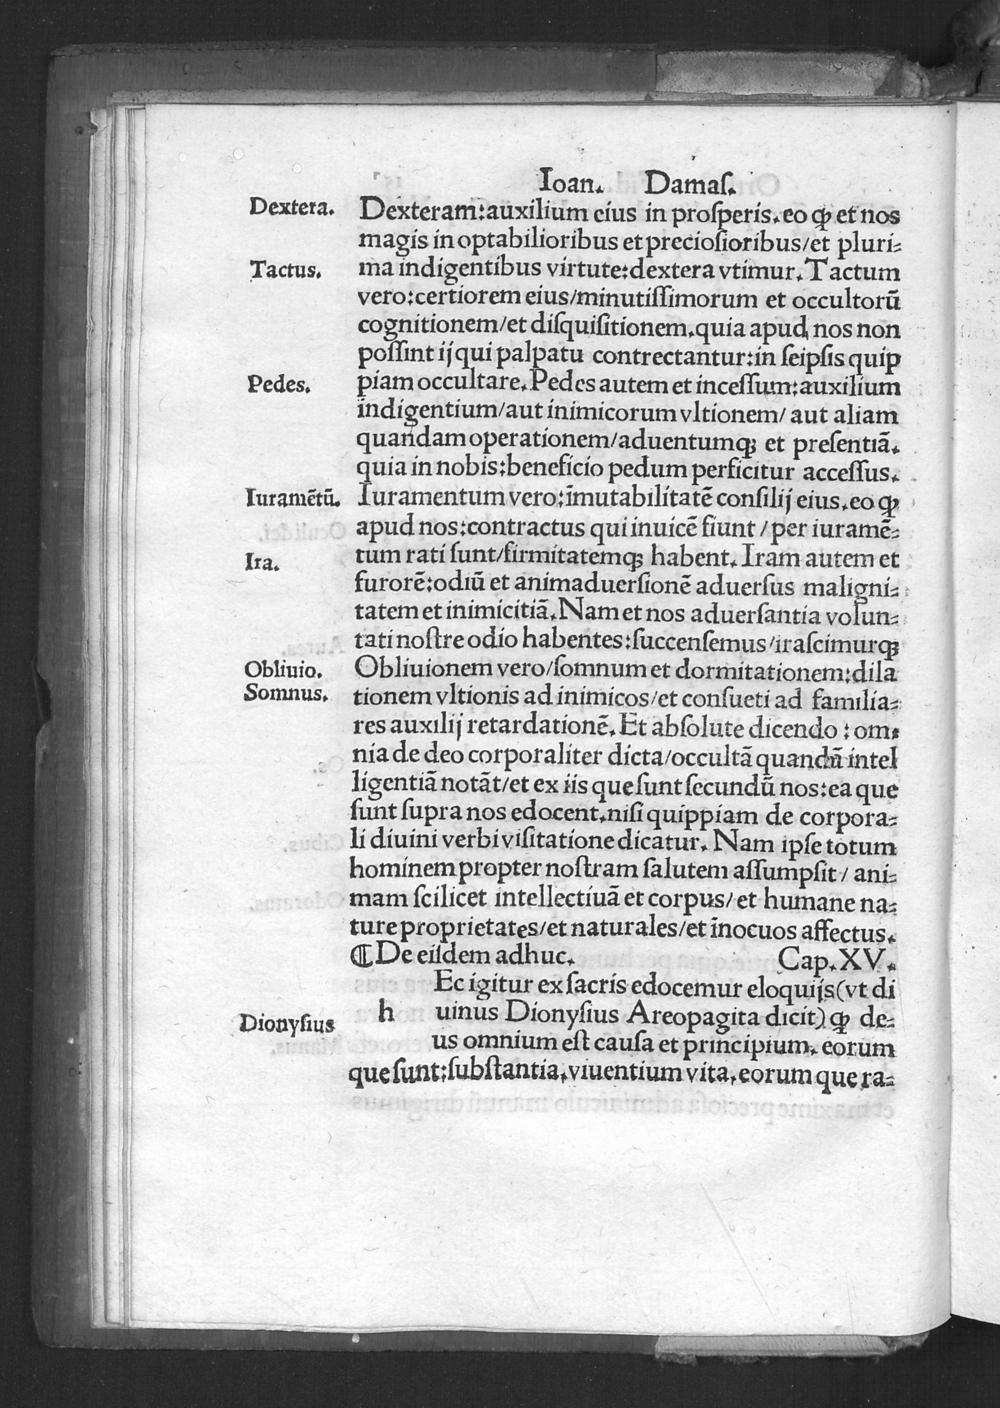 Ioan. Damaſ.
Dextera.
Dexteram:auxilium eius in proſperis.eo ꝙ et nos
magis in optabilioribus et precioſioribus/et pluri⸗
Tactus.
ma indigentibus virtute:dextera vtimur.Tactum
vero:certiorem eius/minutiſſimorum et occultorū
cognitionem/et diſquiſitionem.quia apud nos non
poſſint ij qui palpatu contrectantur:in ſeipſis quip
Pedes.
piam occultare.Pedes autem et inceſſum:auxilium
indigentium/aut inimicorum vltionem/ aut aliam
quandam operationem/aduentumqꝫ et preſentiā.
quia in nobis:beneficio pedum perficitur acceſſus.
Iuramētū.
Iuramentum vero:īmutabilitatē conſilij eius.eo ꝙ
apud nos:contractus qui inuicē fiunt / per iuramē⸗
Ira.
tum rati ſunt/firmitatemqꝫ habent.Iram autem et
furorē:odiū et animaduerſionē aduerſus maligni⸗
tatem et inimicitiā.Nam et nos aduerſantia volun⸗
tati noſtre odio habentes:ſuccenſemus/iraſcimurqꝫ
Obliuio.
Obliuionem vero/ſomnum et dormitationem:dila
Somnus.
tionem vltionis ad inimicos/et conſueti ad familia⸗
res auxilij retardationē.Et abſolute dicendo : om⸗
nia de deo corporaliter dicta/occultā quandū intel
ligentiā notāt/et ex iis que ſunt ſecundū nos:ea que
ſunt ſupra nos edocent.niſi quippiam de corpora⸗
li diuini verbi viſitatione dicatur. Nam ipſe totum
hominem propter noſtram ſalutem aſſumpſit/ ani⸗
mam ſcilicet intellectiuā et corpus/et humane na⸗
ture proprietates/et naturales/et īnocuos affectus.
¶De eiſdem adhuc. Cap.XV.
Ec igitur ex ſacris edocemur eloquijs(vt di
Dionyſius
h uinus Dionyſius Areopagita dicit)ꝙ de⸗
us omnium eſt cauſa et principium. eorum
que ſunt:ſubſtantia.viuentium vita.eorum que ra⸗